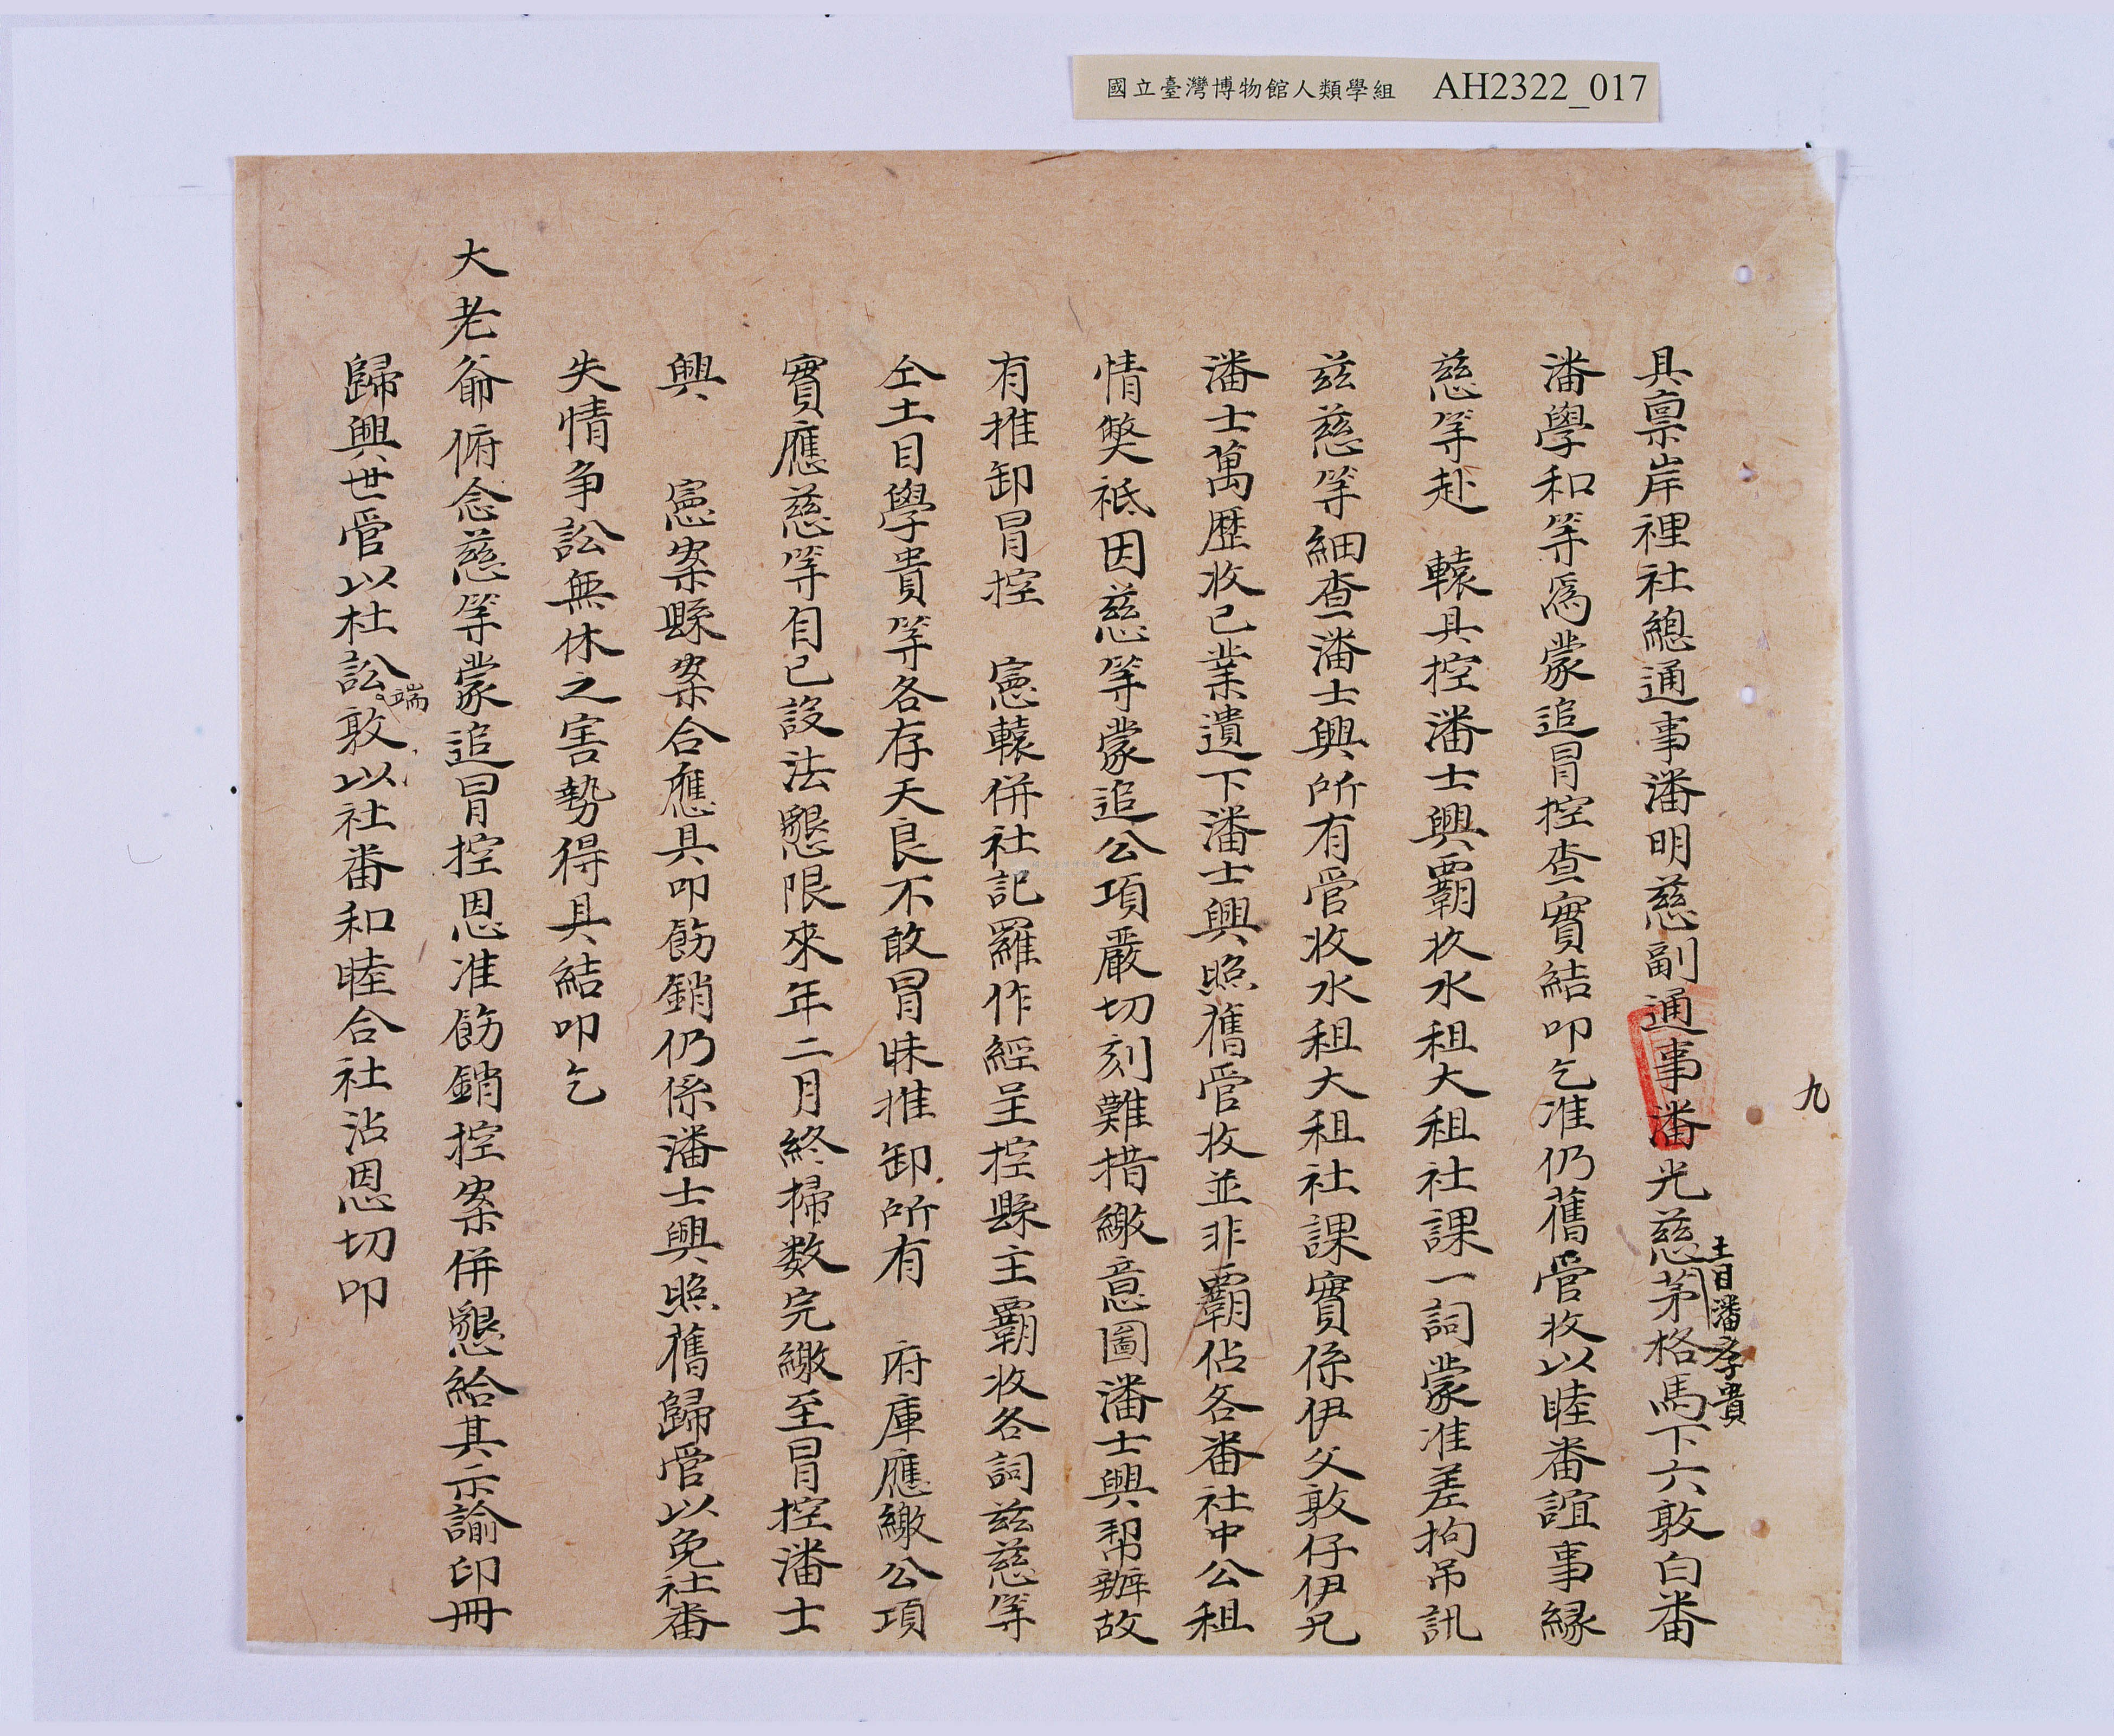 國立臺灣博物館人類學組 AH2322_017
九
具稟岸裡社總通事潘明慈副通事潘光慈茅格馬下六敦白番
土目潘孝貴
潘學和等爲蒙追冒控查實結叩乞准仍舊管收以睦番誼事縁
慈等赴 轅具控潘士興覇收水租大租社課一詞蒙准差拘吊訊
茲慈等細查潘士興所有管收水租大租社課實係伊父敦仔伊兄
潘士萬歷收已業遺下潘士興照舊管收並非覇佔各番社中公租
情獘祗因慈等蒙追公項嚴切刻難措繳意圖潘士興帮辦故
有推卸冒控 憲轅併社記羅作經呈控縣主覇收各詞茲慈等
仝土目學貴等各存天良不敢冒昧推卸所有 府庫應繳公項
實應慈等自已設法懇限來年二月終掃数完繳至冒控潘士
興 憲案縣案合應具叩飭銷仍係潘士興照舊歸管以免社番
失情争訟無休之害勢得具結叩乞
大老爺俯念慈等蒙追冒控恩准飭銷控案併懇給其示諭印冊
歸興世管以杜訟端敦以社番和睦合社沾恩切叩